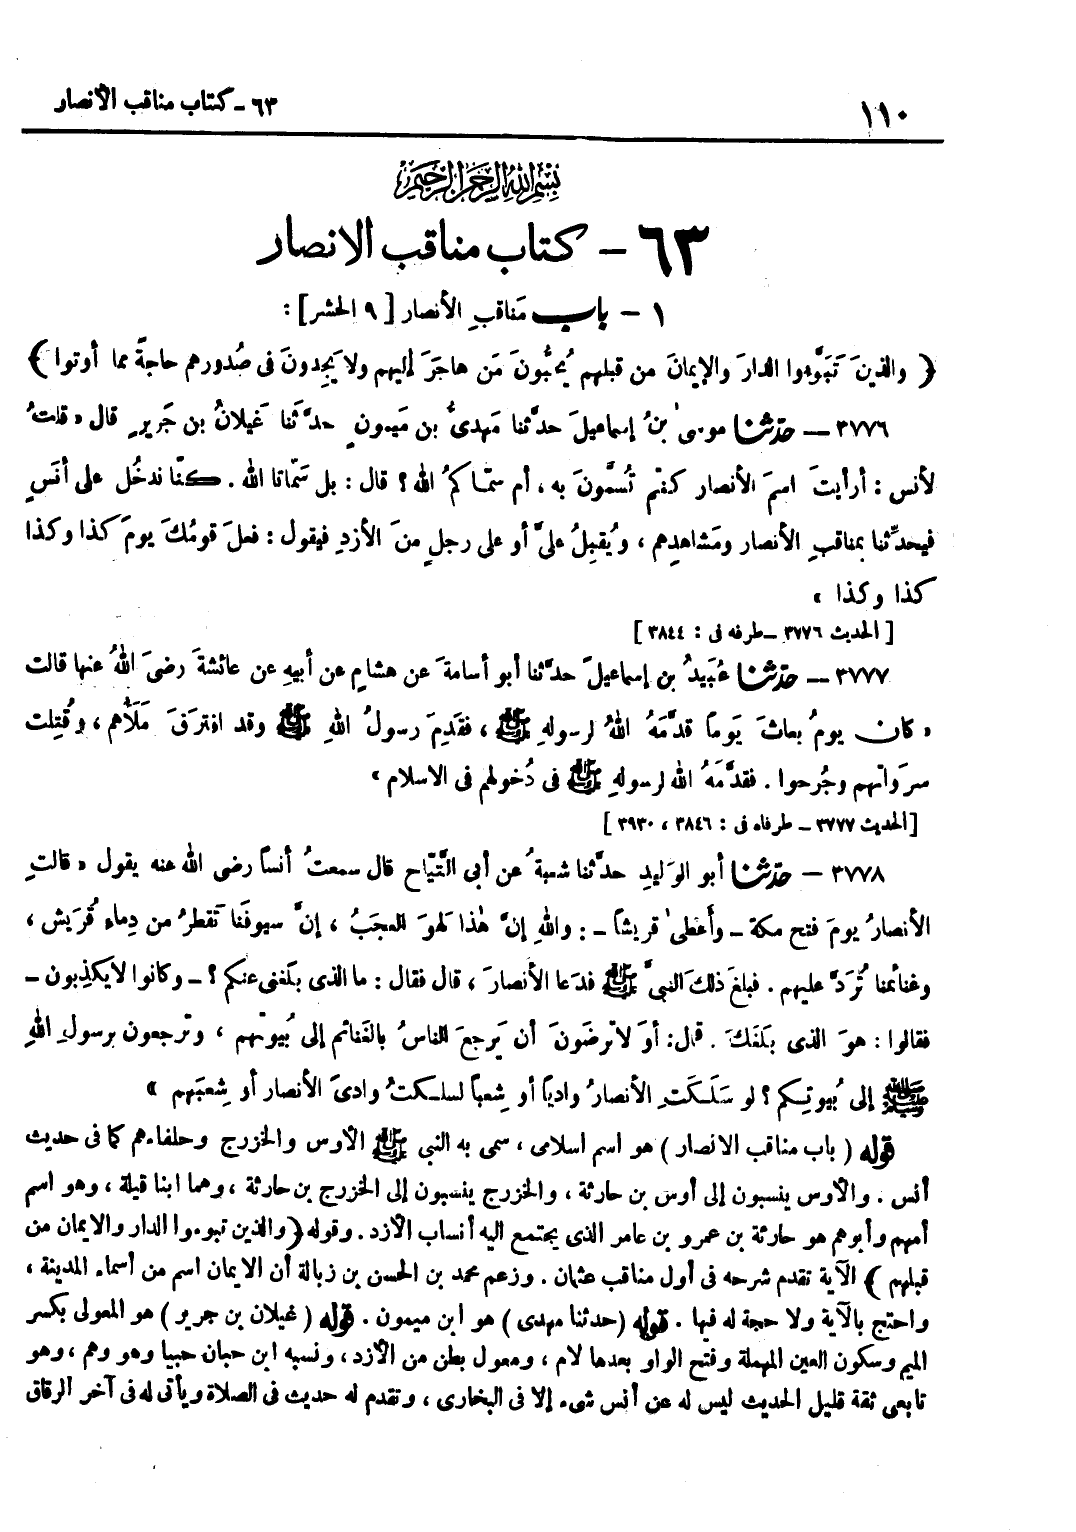 ١١٠
٦٣ - كتاب مناقب الأنصار
بسم الله الرحمن الرحيم
٦٣ - كتاب مناقب الانصار
١ - باب مَناقبِ الأنصار [ ٩ الحشر ] :
﴿ والذينَ تَبَوَّءوا الدارَ والإيمانَ من قبلِهم يُحبُّونَ مَن هاجَرَ إليهم ولا يَجِدونَ فى صُدورهم حاجةً مما أوتوا ﴾
٣٧٧٦ - حدّثنا موسىٰ بنُ إسماعيلَ حدَّثنا مَهدىُّ بن مَيمونٍ حدَّثَنا غَيلانُ بن جَريرٍ قال « قلتُ
لأنس : أرأيتَ اسمَ الأنصار كنتم تُسمَّونَ به ، أم سمّاكمُ الله ؟ قال : بل سَمّانا الله . كنّا ندخُل على أنَسٍ
فيحدِّثنا بمناقبِ الأنصار ومَشاهدِهم ، ويُقبِلُ علىَّ أو على رجلٍ منَ الأزدِ فيقول : فعلَ قومُكَ يومَ كذا وكذا
كذا وكذا »
[ الحديث ٣٧٧٦ - طرفه فى : ٣٨٤٤ ]
٣٧٧٧ - حدّثنا عُبَيدُ بن إسماعيلَ حدَّثنا أبو أسامةَ عن هشامٍ عن أبيهِ عن عائشةَ رضىَ اللهُ عنها قالت
« كان يومُ بعاثَ يَوماً قدَّمَهُ اللهُ لرسولهِ ﷺ ، فقَدِمَ رسولُ اللهِ ﷺ وقد افترَقَ مَلَأُهم ، وقُتِلت
سرَواتهم وجُرحوا . فقدَّمَهُ الله لرسولهِ ﷺ فى دُخولهم فى الاسلام »
[ الحديث ٣٧٧٧ - طرفاه فى : ٣٨٤٦ ، ٣٩٣٠ ]
٣٧٧٨ - حدّثنا أبو الوَليدِ حدَّثنا شعبةُ عن أبى التَّيّاح قال سمعتُ أنساً رضى الله عنه يقول « قالتِ
الأنصارُ يومَ فتح مكة - وأَعطىٰ قريشاً - : واللهِ إنَّ هٰذا لهوَ العجَبُ ، إنَّ سيوفَنا تَقطرُ من دِماءِ قُرَيش ،
وغنائمنا تُرَدَّ عليهم . فبلغَ ذلكَ النبىَّ ﷺ فدَعا الأنصارَ ، قال فقال : ما الذى بلَغنى عنكم ؟ - وكانوا لا يكذِبون -
فقالوا : هوَ الذى بلَغَكَ . قال: أوَ لا ترضَونَ أن يَرجعَ الناسُ بالغَنائم إلى بُيوتهم ، وترجعون برسولِ اللهِ
ﷺ إلى بُيوتِكم ؟ لو سَلَكتِ الأنصارُ وادياً أو شِعباً لسلكتُ وادىَ الأنصار أو شِعبَهم »
قوله ( باب مناقب الانصار ) هو اسم اسلامى ، سمى به النبى ﷺ الأوس والخزرج وحلفاءهم كما فى حديث
أنس . والأوس ينسبون إلى أوس بن حارثة ، والخزرج ينسبون إلى الخزرج بن حارثة ، وهما ابنا قيلة ، وهو اسم
أمهم وأبوهم هو حارثة بن عمرو بن عامر الذى يجتمع اليه أنساب الأزد . وقوله ﴿ والذين تبوءوا الدار والايمان من
قبلهم ﴾ الآية تقدم شرحه فى أول مناقب عثمان . وزعم محمد بن الحسن بن زبالة أن الايمان اسم من أسماء المدينة ،
واحتج بالآية ولا حجة له فيها . قوله ( حدثنا مهدى ) هو ابن ميمون . قوله ( غيلان بن جرير ) هو المعولى بكسر
الميم وسكون العين المهملة وفتح الواو بعدها لام ، ومعول بطن من الأزد ، ونسبه ابن حبان حبيا وهو وهم ، وهو
تابعى ثقة قليل الحديث ليس له عن أنس شىء إلا فى البخارى ، وتقدم له حديث فى الصلاة ويأتى له فى آخر الرقاق